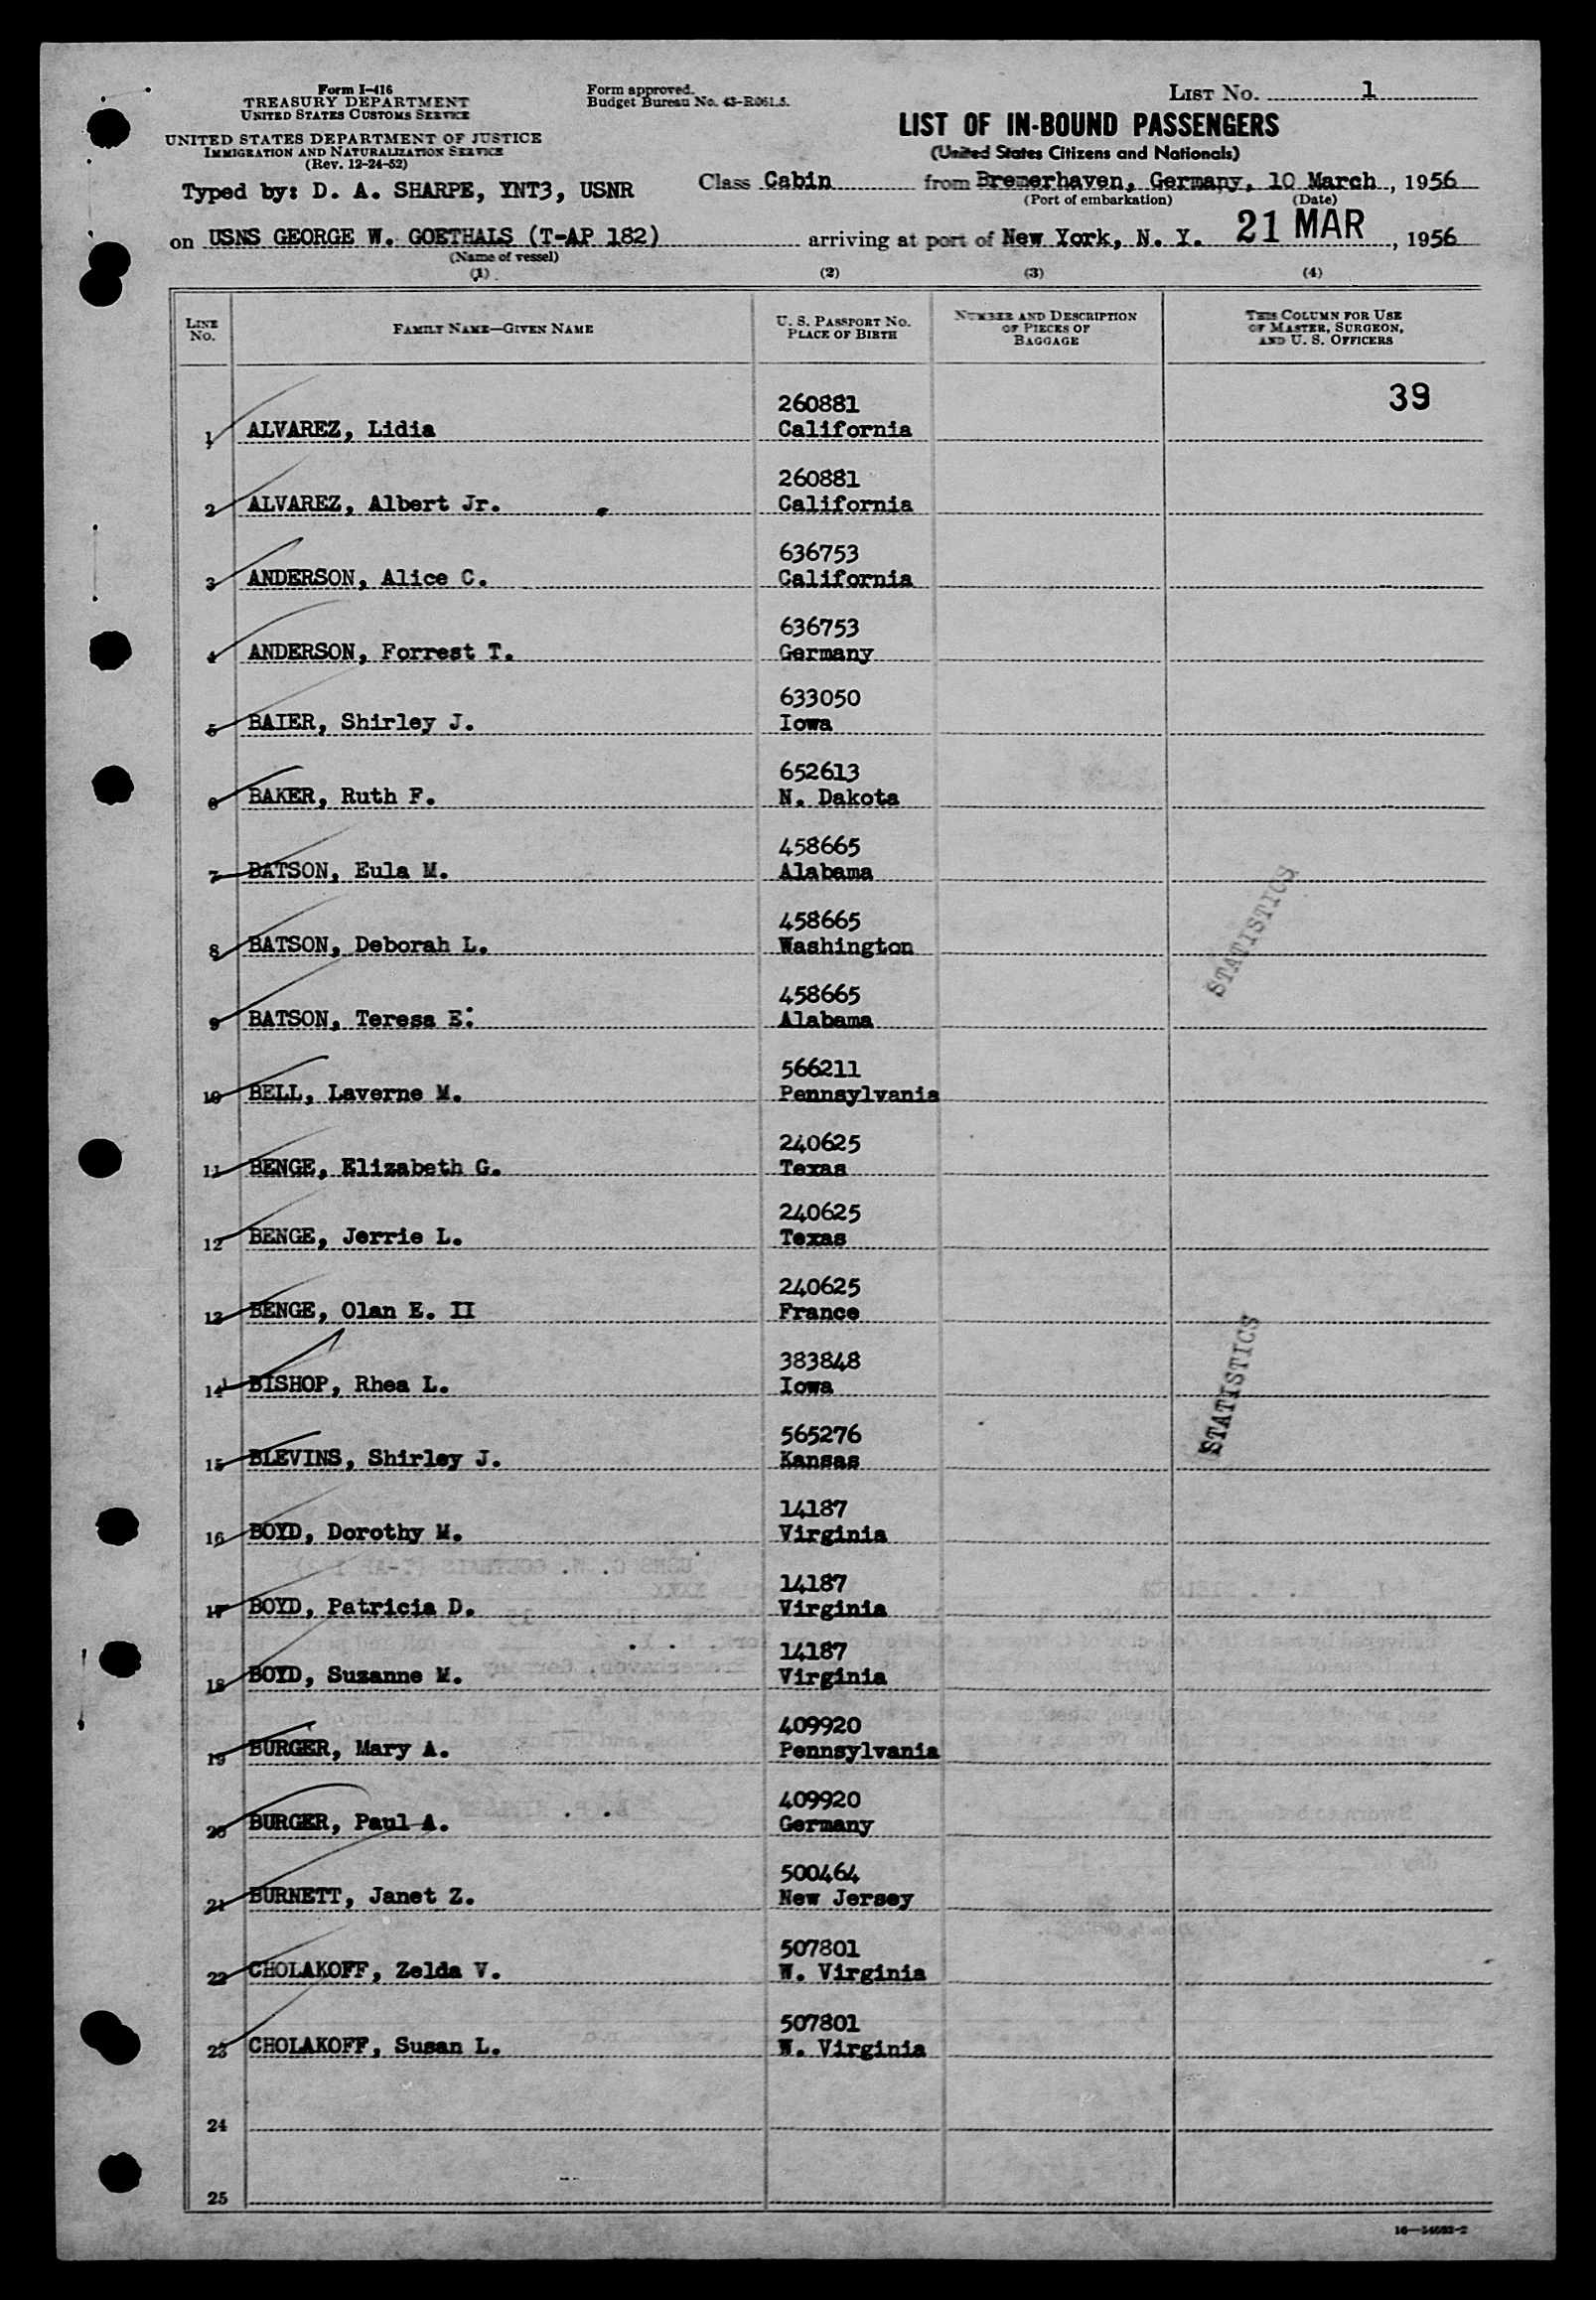 Form I-416
TREASURY DEPARTMENT
UNITED STATES CUSTOMS SERVICE
UNITED STATES DEPARTMENT OF JUSTICE
IMMIGRATION AND NATURALIZATION SERVICE
(Rev. 12-24-52)
Form approved.
Budget Bureau No. 43-R061.5.
LIST NO. 1
LIST OF IN-BOUND PASSENGERS
(United States Citizens and Nationals)
Typed by: D. A. SHARPE, YNT3, USNR
Class Cabin from Bremerhaven, Germany, 10 March, 1956
(Port of embarkation) (Date)
on USNS GEORGE W. GOETHALS (T-AP 182) arriving at port of New York, N. Y. 21 MAR, 1956
(Name of vessel)
(1) (2) (3) (4)
LINE NO. FAMILY NAME—GIVEN NAME U. S. PASSPORT NO. PLACE OF BIRTH NUMBER AND DESCRIPTION OF PIECES OF BAGGAGE THIS COLUMN FOR USE OF MASTER, SURGEON, AND U. S. OFFICERS
39
260881
1 ALVAREZ, Lidia California
260881
2 ALVAREZ, Albert Jr. California
636753
3 ANDERSON, Alice C. California
636753
4 ANDERSON, Forrest T. Germany
633050
5 BAIER, Shirley J. Iowa
652613
6 BAKER, Ruth F. N. Dakota
458665
7 BATSON, Eula M. Alabama
458665
8 BATSON, Deborah L. Washington
STATISTICS
458665
9 BATSON, Teresa E. Alabama
566211
10 BELL, Laverne M. Pennsylvania
240625
11 BENGE, Elizabeth G. Texas
240625
12 BENGE, Jerrie L. Texas
240625
13 BENGE, Olan E. II France
383848
14 BISHOP, Rhea L. Iowa
STATISTICS
565276
15 BLEVINS, Shirley J. Kansas
14187
16 BOYD, Dorothy M. Virginia
14187
17 BOYD, Patricia D. Virginia
14187
18 BOYD, Suzanne M. Virginia
409920
19 BURGER, Mary A. Pennsylvania
409920
20 BURGER, Paul A. Germany
500464
21 BURNETT, Janet Z. New Jersey
507801
22 CHOLAKOFF, Zelda V. W. Virginia
507801
23 CHOLAKOFF, Susan L. W. Virginia
24
25